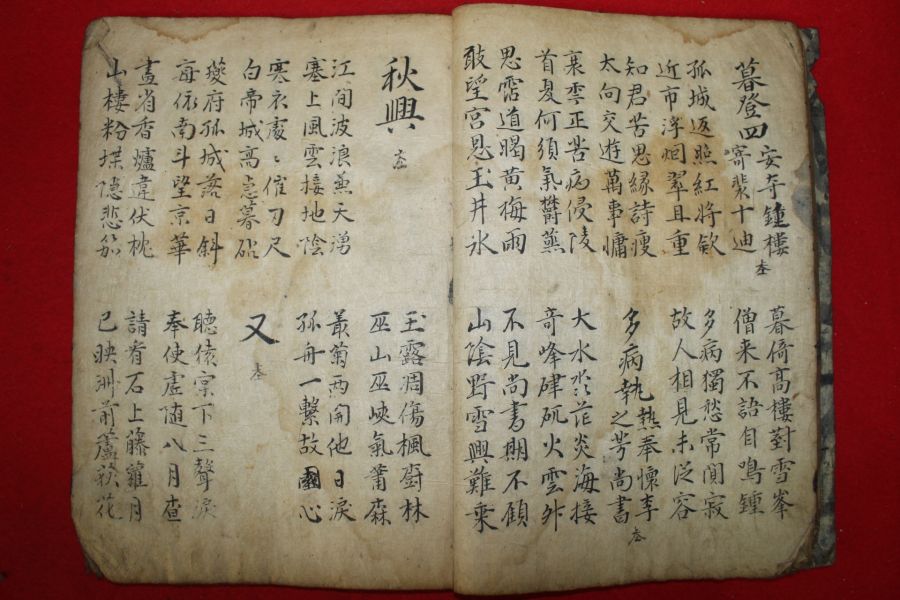 暮登四安寺鐘樓
寄裴十迪
暮倚高樓對雪峯
僧来不語自鳴鍾
孤城返照紅將欲
近市浮烟翠且重
多病獨愁常闃寂
故人相見未從容
知君苦思緣詩瘦
太向交遊萬事慵
多病執熱奉懷李
之芳尚書
衰年正苦病侵陵
首夏何須氣欝蒸
大水淼茫炎海接
奇峰硉矹火雲升
思霑道暍黃梅雨
敢望宮恩玉井氷
不見尚書期不顧
山陰野雪興難乘
秋興
玉露凋傷楓樹林
巫山巫峽氣蕭森
江間波浪兼天湧
塞上風雲接地陰
叢菊兩開他日淚
孤舟一繫故園心
寒衣處〻催刀尺
白帝城高急暮砧
又
夔府孤城落日斜
每依南斗望京華
聽猿實下三聲淚
奉使虛隨八月查
畫省香爐違伏枕
山樓粉堞隱悲笳
請看石上藤蘿月
已映洲前蘆荻花